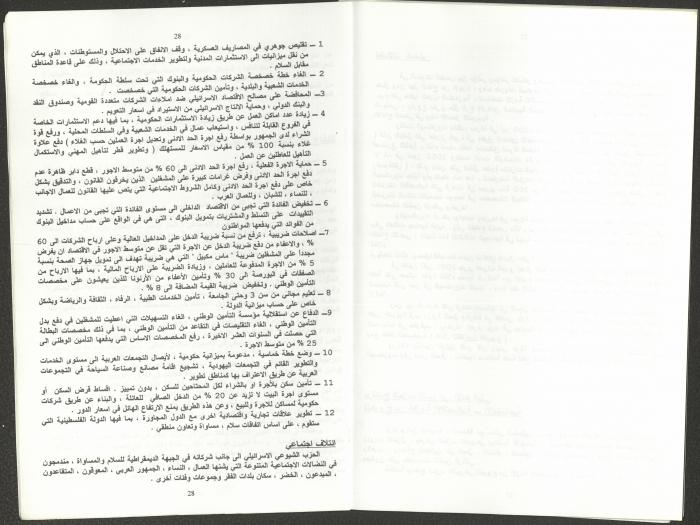 28
1 – تقليص جوهري في المصاريف العسكرية ، وقف الانفاق على الاحتلال والمستوطنات ، الذي يمكن
من نقل ميزانيات الى الاستثمارات المدنية ولتطوير الخدمات الاجتماعية ، وذلك على قاعدة المناطق
مقابل السلام .
2 – الغاء خطة خصخصة الشركات الحكومية والبنوك التي تحت سلطة الحكومة ، والغاء خصخصة
الخدمات الشعبية والبلدية ، وتأمين الشركات الحكومية التي خصخصت .
3 – المحافظة على مصالح الاقتصاد الاسرائيلي ضد املاءات الشركات متعددة القومية وصندوق النقد
والبنك الدولي ، وحماية الانتاج الاسرائيلي من الاستيراد في اسعار التعويم .
4 – زيادة عدد اماكن العمل عن طريق زيادة الاستثمارات الحكومية ، بما فيها دعم الاستثمارات الخاصة
في الفروع القابلة للتنافس ، واستيعاب عمال في الخدمات الشعبية وفي السلطات المحلية ، ورفع قوة
الشراء لدى الجمهور بواسطة رفع اجرة الحد الادنى وتعديل اجرة العملين حسب الغلاء ( دفع علاوة
غلاء بنسبة 100 % من مقياس الاسعار للمستهلك ( وتطوير قطر لتأهيل المهني والاستكمال
التأهيل للعاطلين عن العمل .
5 – حماية الاجرة الفعلية ، رفع اجرة الحد الادنى الى 60 % من متوسط الاجور ، قطع دابر ظاهرة عدم
دفع اجرة الحد الادنى وفرض غرامات كبيرة على المشغلين الذين يخرقون القانون ، والتدقيق بشكل
خاص على دفع اجرة الحد الادنى وكامل الشروط الاجتماعية التي ينص عليها القانون للعمال الاجانب
، للنساء ، للشبان ، وللعمال العرب .
6 – تخفيض الفائدة التي تجبى من الاقتصاد الداخلي الى مستوى الفائدة التي تجبى من الاعمال . تشديد
التقييدات على التسلط والمشتريات بتمويل البنوك ، التي هي في الواقع على حساب مداخيل البنوك
من الفوائد التي يدفعها المواطنون
7– اصلاحات ضريبية ، ترفع من نسبة ضريبة الدخل على المداخيل العالية وعلى ارباح الشركات الى 60
% ، والاعفاء من دفع ضريبة الدخل عن الاجرة التي تقل عن متوسط الاجور في الاقتصاد ان يفرض
مجدداً على المشغلين ضريبة " ماس مكبيل " التي هي ضريبة تهدف الى تمويل جهاز الصحة بنسبة
5 % من الاجرة المدفوعة للعاملين ، وزيادة الضريبة على الارباح المالية ، بما فيها الارباح من
الصفقات في البورصة الى 30 % وتأمين الأعفاء من الأرنونا للذين يعيشون على مخصصات
التأمين الوطني . وتخفيض ضريبة القيمة المضافة الى 8 % .
8 – تعليم مجاني من سن 3 وحتى الجامعة ، تأمين الخدمات الطبية ، الرفاه ، الثقافة والرياضة وبشكل
خاص على حساب ميزانية الدولة .
9– الدفاع عن استقلالية مؤسسة التأمين الوطني ، الغاء التسهيلات التي اعطيت للمشغلين في دفع بدل
التأمين الوطني ، الغاء التقليصات في التقاعد من التأمين الوطني ، بما في ذلك مخصصات البطالة
التي حصلت في السنوات العشر الاخيرة ، رفع المخصصات الاساس التي يدفعها التأمين الوطني الى
25 % من متوسط الاجرة .
10 – وضع خطة خماسية ، مدعومة بميزانية حكومية ، لأيصال التجمعات العربية الى مستوى الخدمات
والتطوير القائم في التجمعات اليهودية ، تشجيع اقامة مصانع وصناعة السياحة في التجمعات
العربية عن طريق الاعتراف بها كمناطق تطوير .
11 – تأمين سكن بالأجرة او بالشراء لكل المحتاجين للسكن ، بدون تمييز . اقساط قرض السكن أو
مستوى اجرة البيت لا تزيد عن 20 % من الدخل الصافي للعائلة ، والبناء عن طريق شركات
حكومية لمساكن للاجرة وللبيع ، وعن هذه الطريق يمنع الارتفاع الهائل في اسعار الدور .
12 – تطوير علاقات تجارية واقتصادية اخرى مع الدول المجاورة ، بما فيها الدولة الفلسطينية التي
ستقوم ، على اساس اتفاقات سلام ، مساواة وتعاون منطقي .
ائتلاف اجتماعي
الحزب الشيوعي الاسرائيلي الى جانب شركائه في الجبهة الديمقراطية للسلام والمساواة ، مندمجون
في النضالات الاجتماعية المتنوعة التي يشنها العمال ، النساء ، الجمهور العربي ، المعوقون ، المتقاعدون
، المبدعون ، الخضر ، سكان بلدات الفقر وجموعات وفئات أخرى .
28